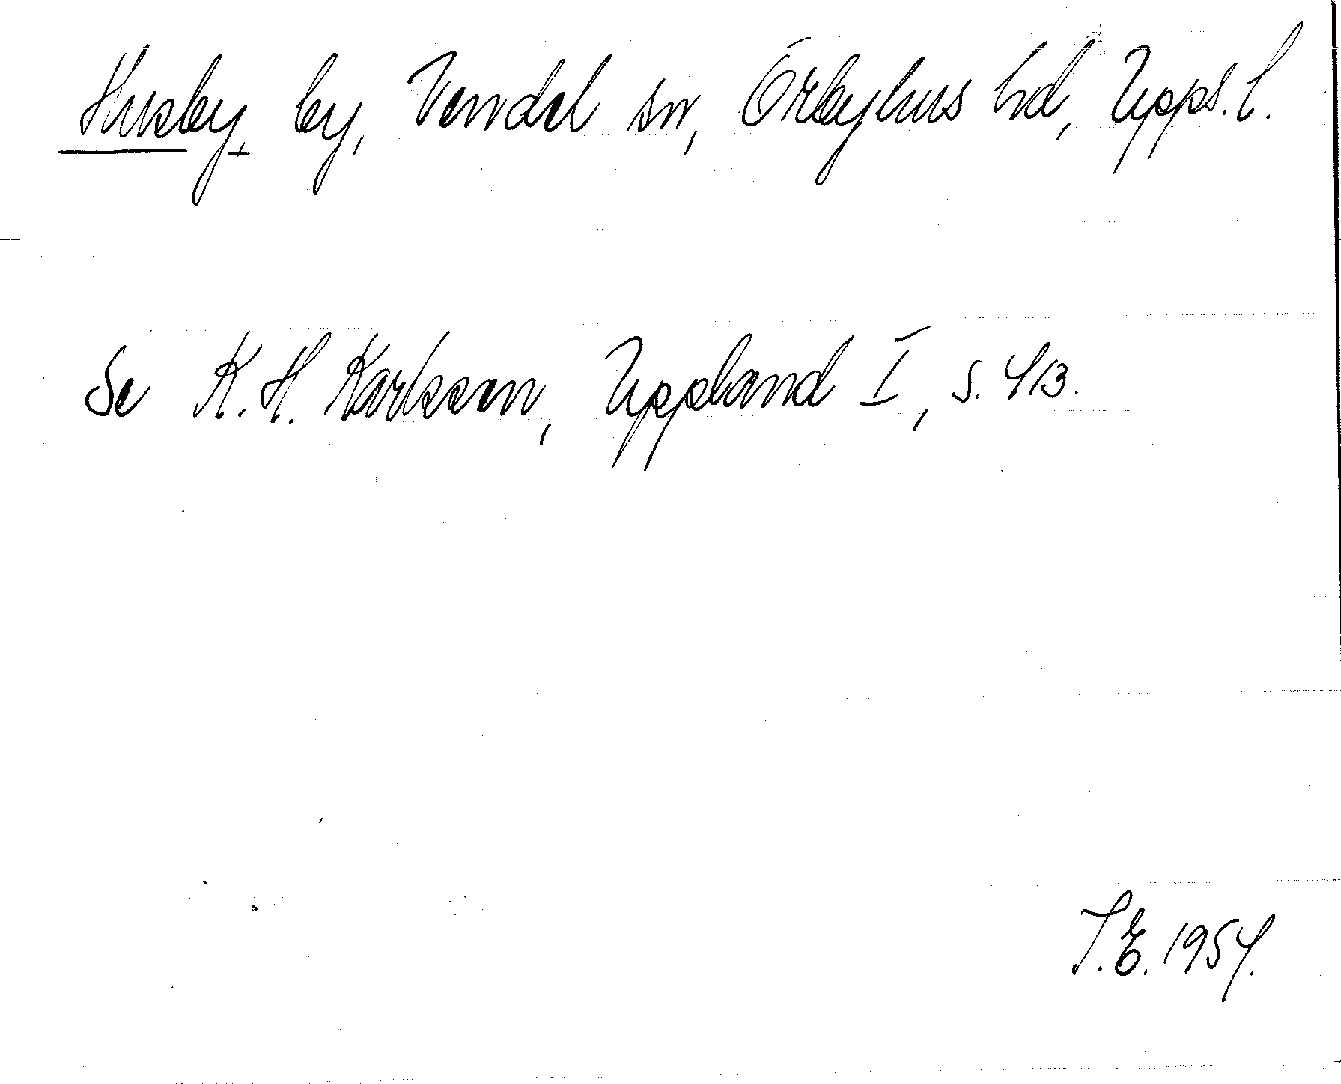 Husby, by, Vendel sn, Örbyhus hd, Upps. l.
Se K. H. Karlsson, Uppland I, s. 413.
T. E. 1954.